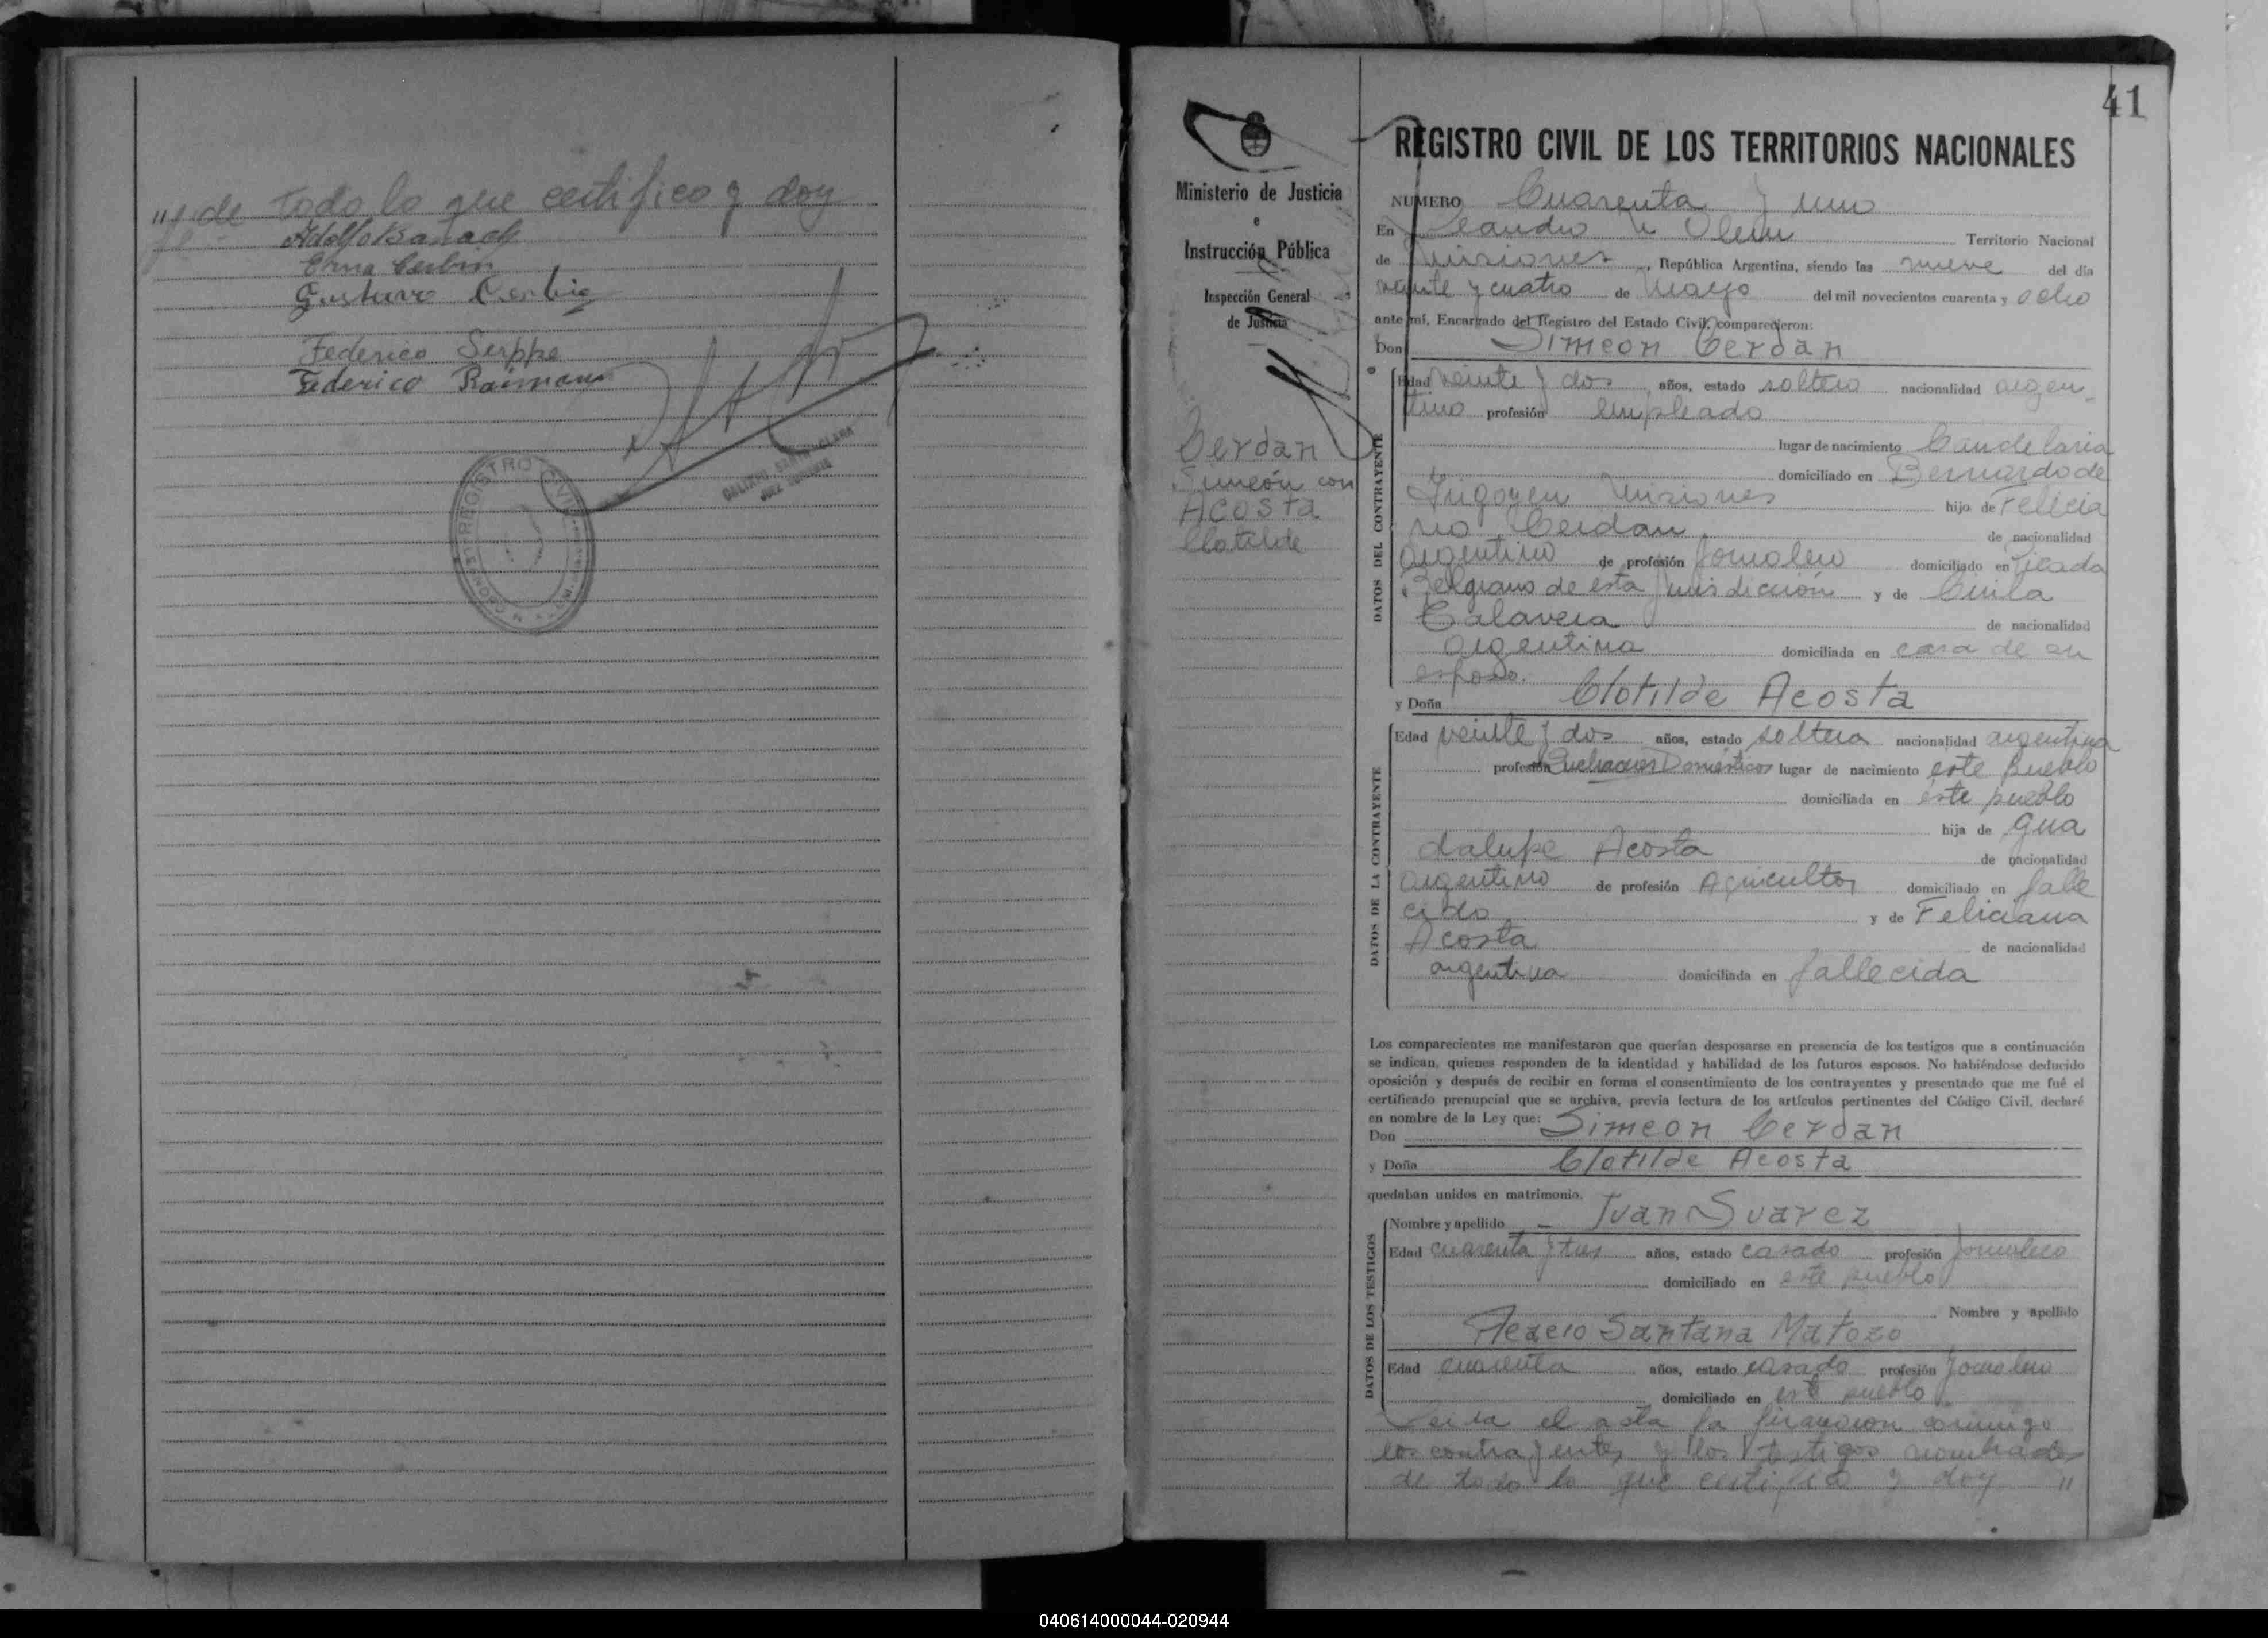 "y de todo lo que certifico y doy
fe
Adolfo
Erna Cerbin
Gustavo Cerbin
Federico Serppe
Federico Raimann
REGISTRO CIVIL
GALIANO SANTA CLARA
JUEZ
41
Ministerio de Justicia
e
Instrucción Pública
Inspección General
de Justicia
Cerdan
Simeón con
Acosta
Clotilde
REGISTRO CIVIL DE LOS TERRITORIOS NACIONALES
NUMERO Cuarenta y uno
En Leandro N Alem Territorio Nacional
de Misiones, República Argentina, siendo las nueve del día
veinte y cuatro de Mayo del mil novecientos cuarenta y ocho
ante mí, Encargado del Registro del Estado Civil, comparecieron:
Don Simeon Cerdan
DATOS DEL CONTRAYENTE
Edad veinte y dos años, estado soltero nacionalidad argen-
tino profesión empleado
lugar de nacimiento Candelaria
domiciliado en Bernardo de
Irigoyen Misiones hijo de Felicia
no Cerdan de nacionalidad
argentino de profesión Jornalero domiciliado en Picada
Belgrano de esta Jurisdicción y de Cirila
Talavera de nacionalidad
argentina domiciliada en casa de su
esposo.
y Doña Clotilde Acosta
DATOS DE LA CONTRAYENTE
Edad veinte y dos años, estado soltera nacionalidad argentina
profesión Quehaceres Domésticos lugar de nacimiento este pueblo
domiciliada en este pueblo
hija de Gua
dalupe Acosta de nacionalidad
argentino de profesión Agricultor domiciliado en falle
cido y de Feliciana
Acosta de nacionalidad
argentina domiciliada en fallecida
Los comparecientes me manifestaron que querían desposarse en presencia de los testigos que a continuación
se indican, quienes responden de la identidad y habilidad de los futuros esposos. No habiéndose deducido
oposición y después de recibir en forma el consentimiento de los contrayentes y presentado que me fué el
certificado prenupcial que se archiva, previa lectura de los artículos pertinentes del Código Civil, declaré
en nombre de la Ley que:
Don Simeon Cerdan
y Doña Clotilde Acosta
quedaban unidos en matrimonio.
DATOS DE LOS TESTIGOS
Nombre y apellido Juan Suarez
Edad cuarenta y tres años, estado casado profesión Jornalero
domiciliado en este pueblo
Nombre y apellido
Santana Matozo
Edad cuarenta años, estado casado profesión Jornalero
domiciliado en este pueblo
Leida el acta la firmaron conmigo
los contrayentes y los testigos nombrados
de todo lo que certifico y doy "
040614000044-020944